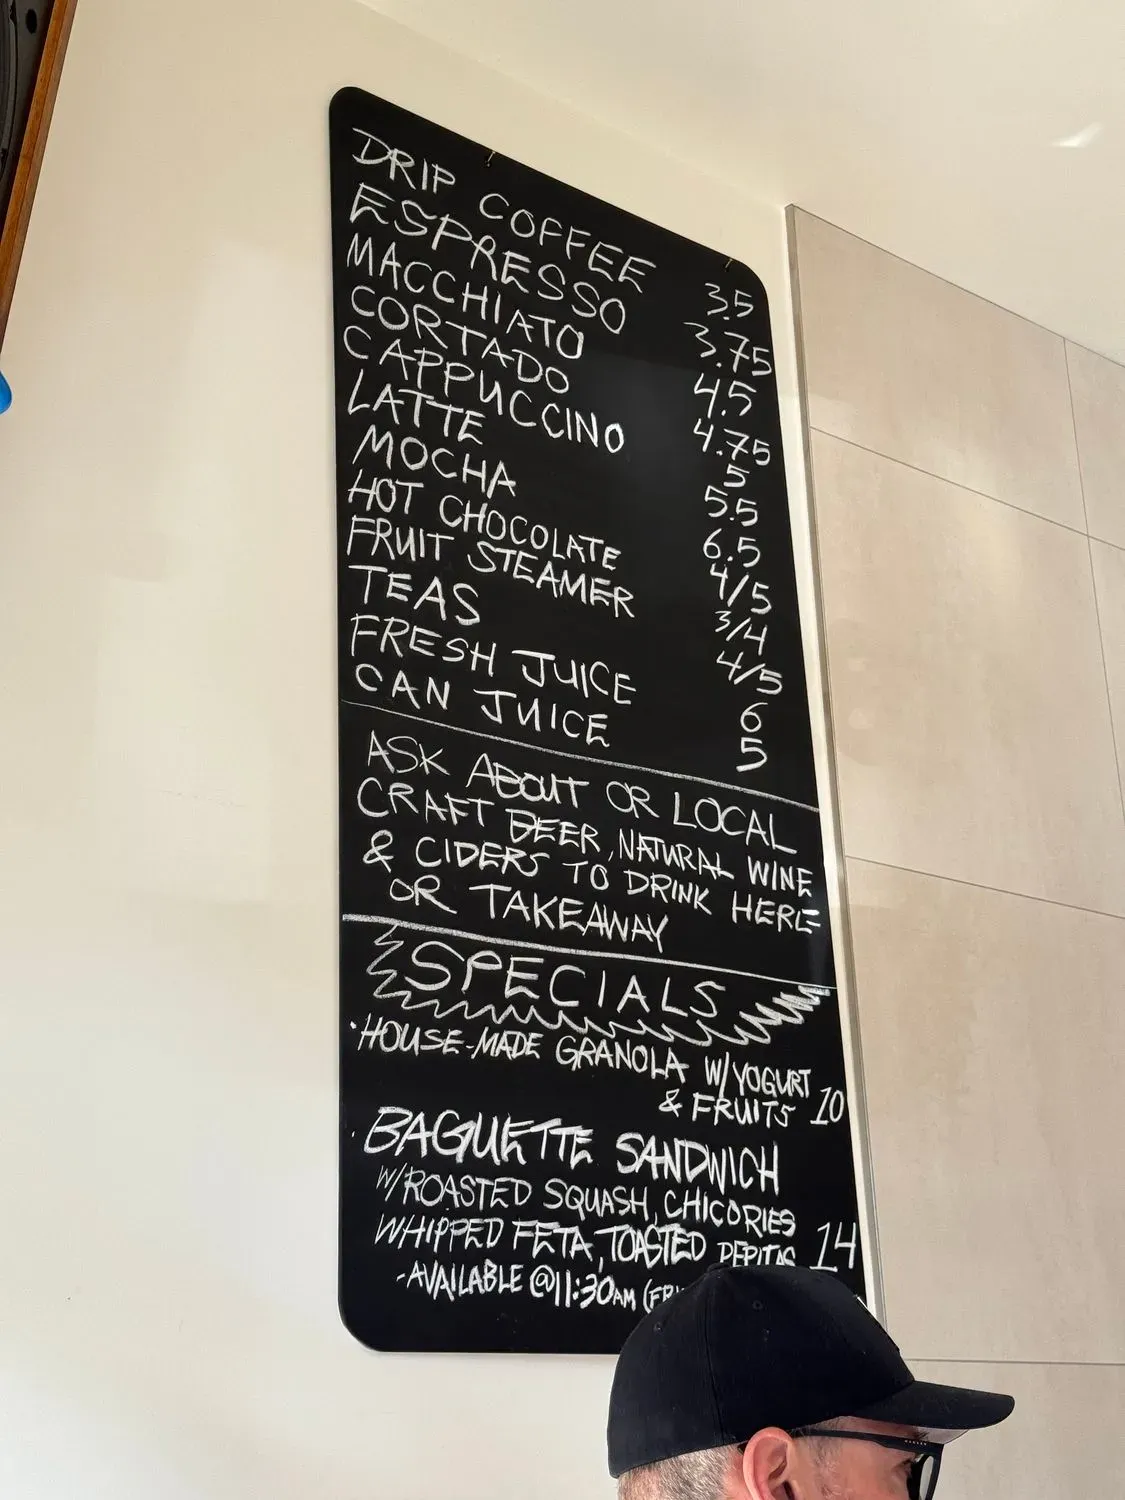 DRIP COFFEE 3.5
ESPRESSO 3.75
MACCHIATO 4.5
CORTADO 4.75
CAPPUCCINO 5
LATTE 5.5
MOCHA 6.5
HOT CHOCOLATE 4/5
FRUIT STEAMER 3/4
TEAS 4/5
FRESH JUICE 6
CAN JUICE 5
ASK ABOUT OR LOCAL
CRAFT BEER, NATURAL WINE
& CIDERS TO DRINK HERE
OR TAKEAWAY
SPECIALS
·HOUSE-MADE GRANOLA W/YOGURT
& FRUITS 10
·BAGUETTE SANDWICH
W/ROASTED SQUASH, CHICORIES
WHIPPED FETA, TOASTED PEPITAS 14
-AVAILABLE @11:30AM